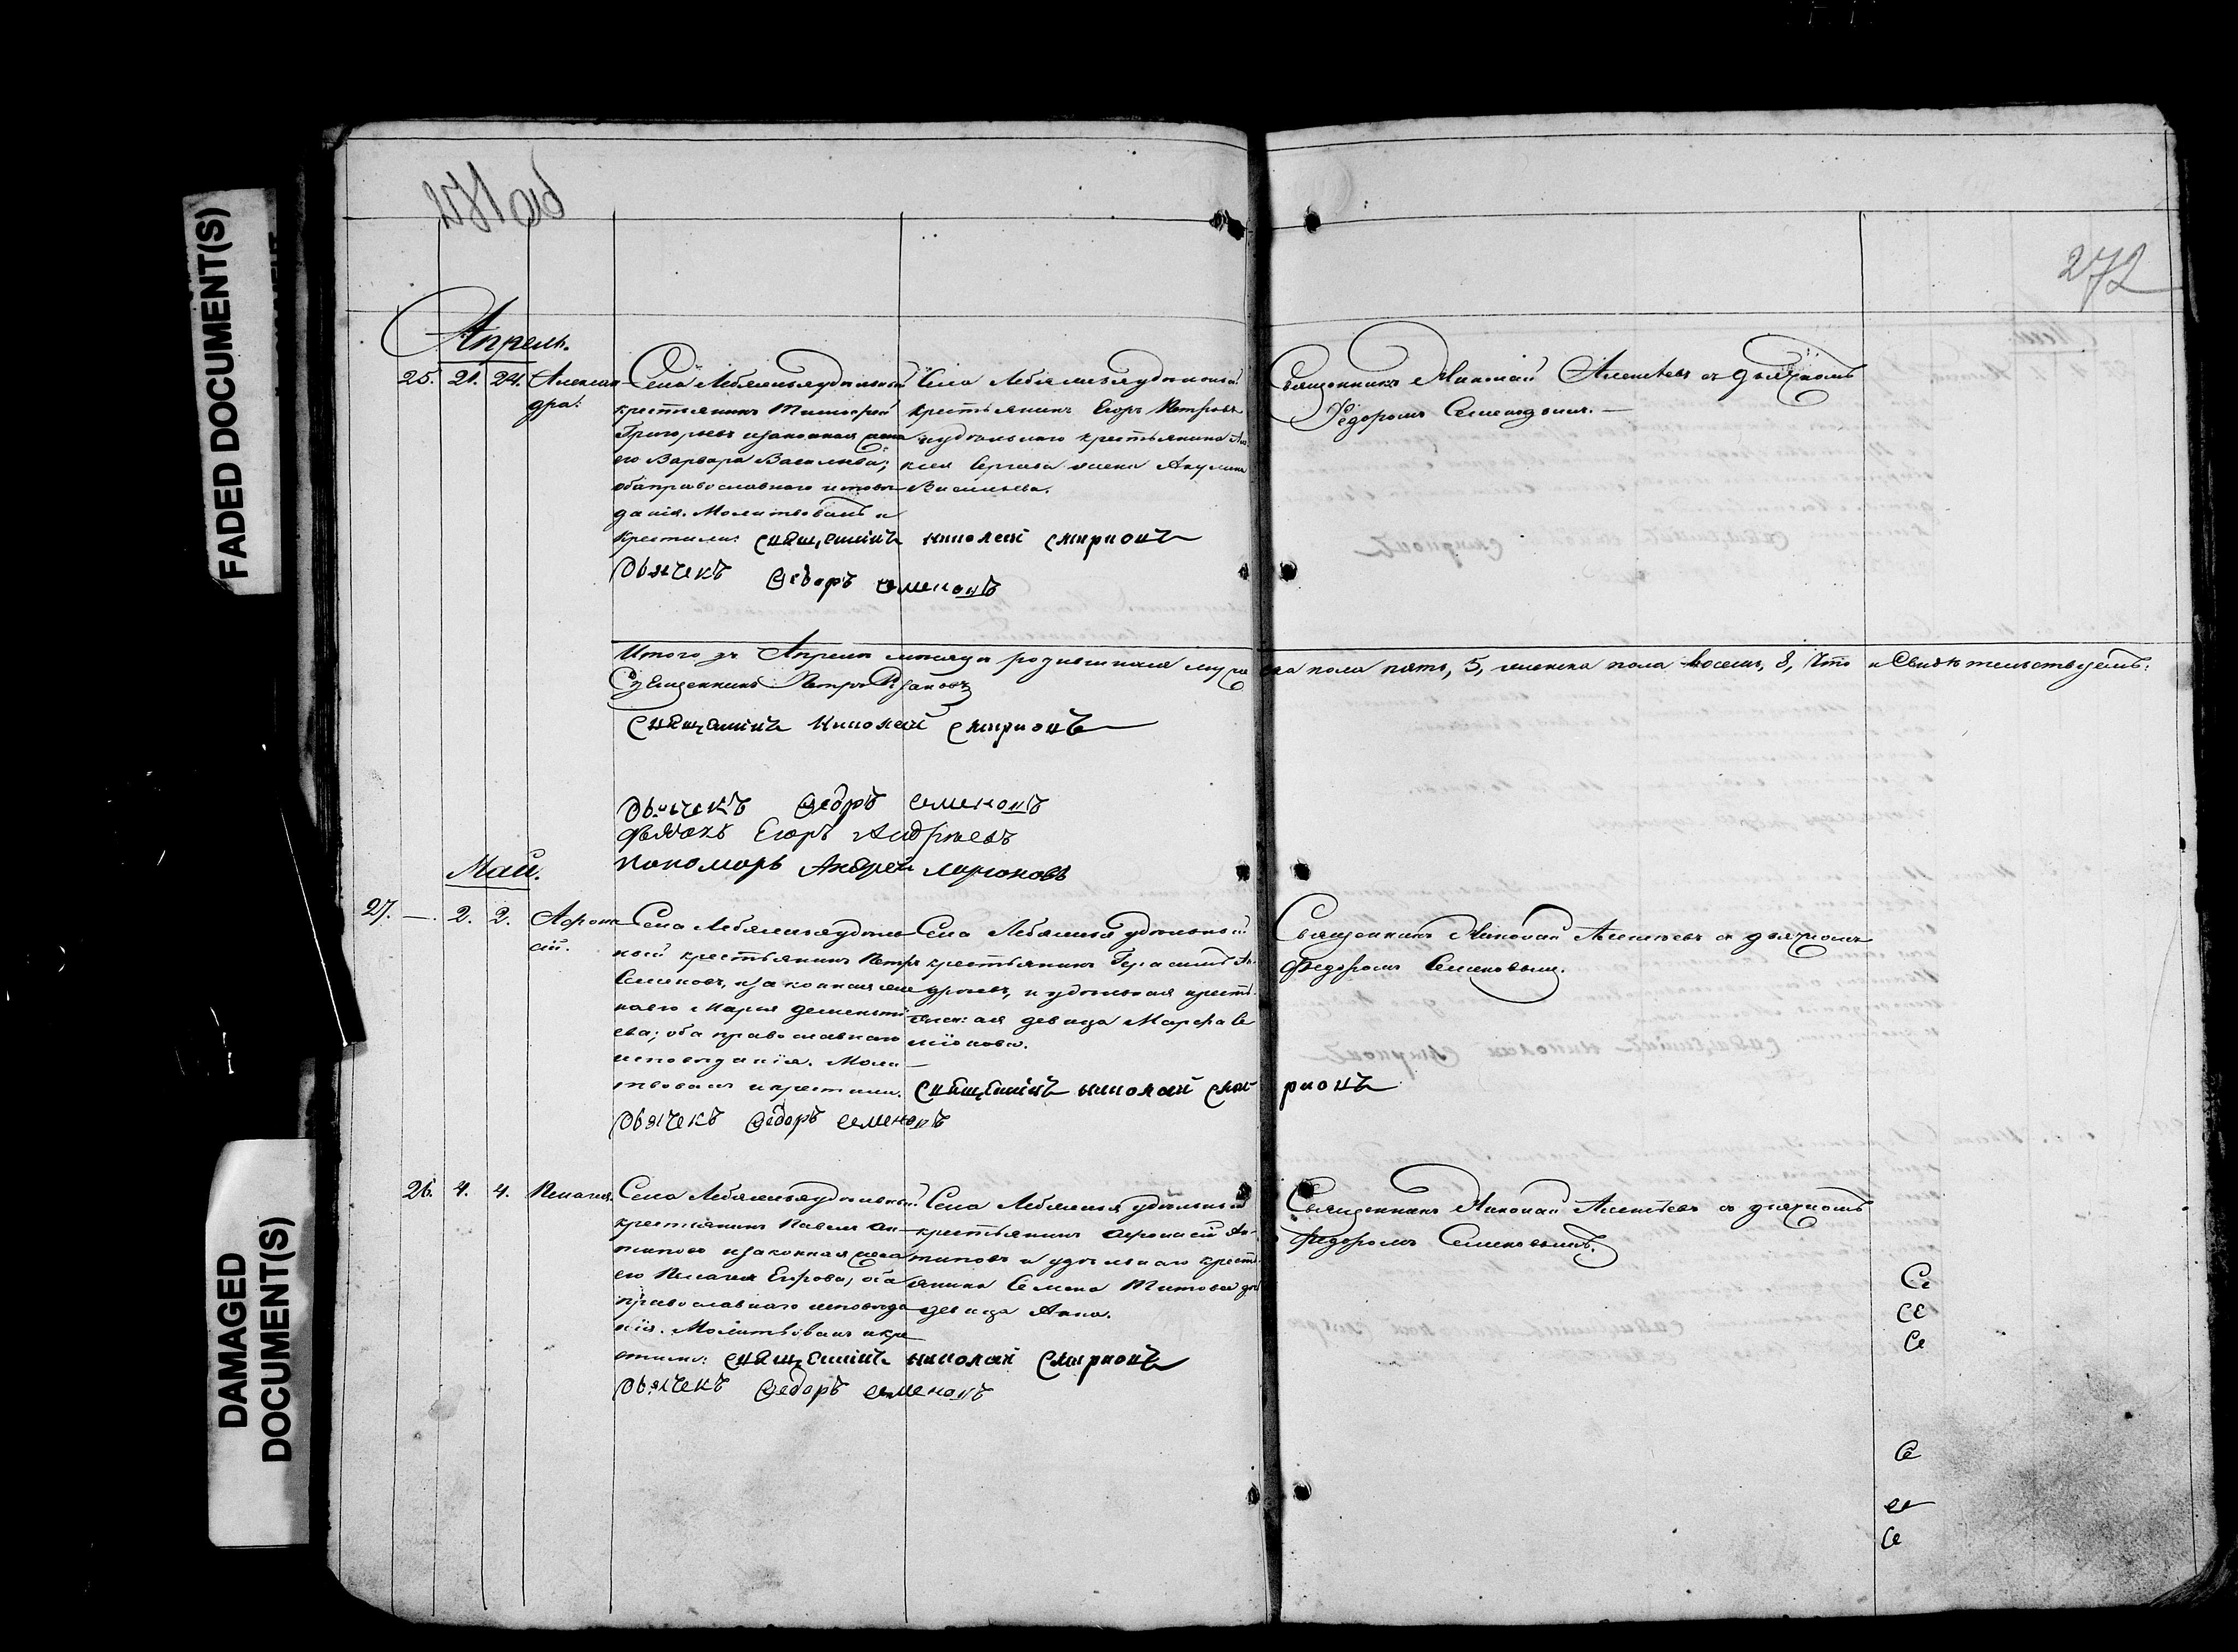 FADED DOCUMENT(S)
DAMAGED
DOCUMENT(S)
271 об
272
Апрель.
25. 21. 24. Александра.
Села Лебяжья удѣльный
крестьянинъ Тимофей
Григорьевъ и законная жена
его Варвара Васильева;
оба православнаго исповѣ
данія. Молитвовалъ и
крестилъ: священникъ николай смирновъ
Дьячекъ Ѳедоръ семеновъ
Села Лебяжья удѣльный
крестьянинъ Егоръ Петровъ
и удѣльнаго крестьянина
Сергѣева жена Акулина
Васильева.
Священникъ Николай Алексѣевъ съ дьячкомъ
Ѳедоромъ Семеновымъ.
Итого въ Апрелѣ мѣсяцѣ родившихся мужеска пола пять, 5, женска пола восемь, 8, что и свидѣтельствуемъ:
Священникъ Петръ
священникъ николай смирновъ
Дьячекъ Ѳедоръ семеновъ
дьячокъ Егоръ Андрѣевъ
пономарь Андрей ларионовъ
Май.
27. — 2. 2. Афанасій.
Села Лебяжья удѣль
ный крестьянинъ Петръ
Семеновъ, и законная же
на его Марья Дементі
ева; оба православнаго
исповѣданія. Моли
твовалъ и крестилъ. священникъ николай смирновъ
Дьячекъ Ѳедоръ семеновъ
Села Лебяжья удѣльный
крестьянинъ Герасимъ Ан
дреевъ, и удѣльная крестьянская девица Марфа Се
міонова.
Священникъ Николай Алексѣевъ съ дьячкомъ
Федоромъ Семеновымъ.
26. 4. 4. Пелагея.
Села Лебяжья удѣльный
крестьянинъ Павелъ Ан
типовъ и законная жена
его Пелагея Егорова, оба
православнаго исповѣда
нія. Молитвовалъ и кре
стилъ: священникъ николай смирновъ
Дьячекъ Ѳедоръ семеновъ
Села Лебяжья удѣльный
крестьянинъ Афонасій Ан
типовъ и удѣльнаго кресть
янина Семена Титова до
девица Анна.
Священникъ Николай Алексѣевъ съ дьячкомъ
Федоромъ Семеновымъ.
Се
Се
Се
Се
се
Се